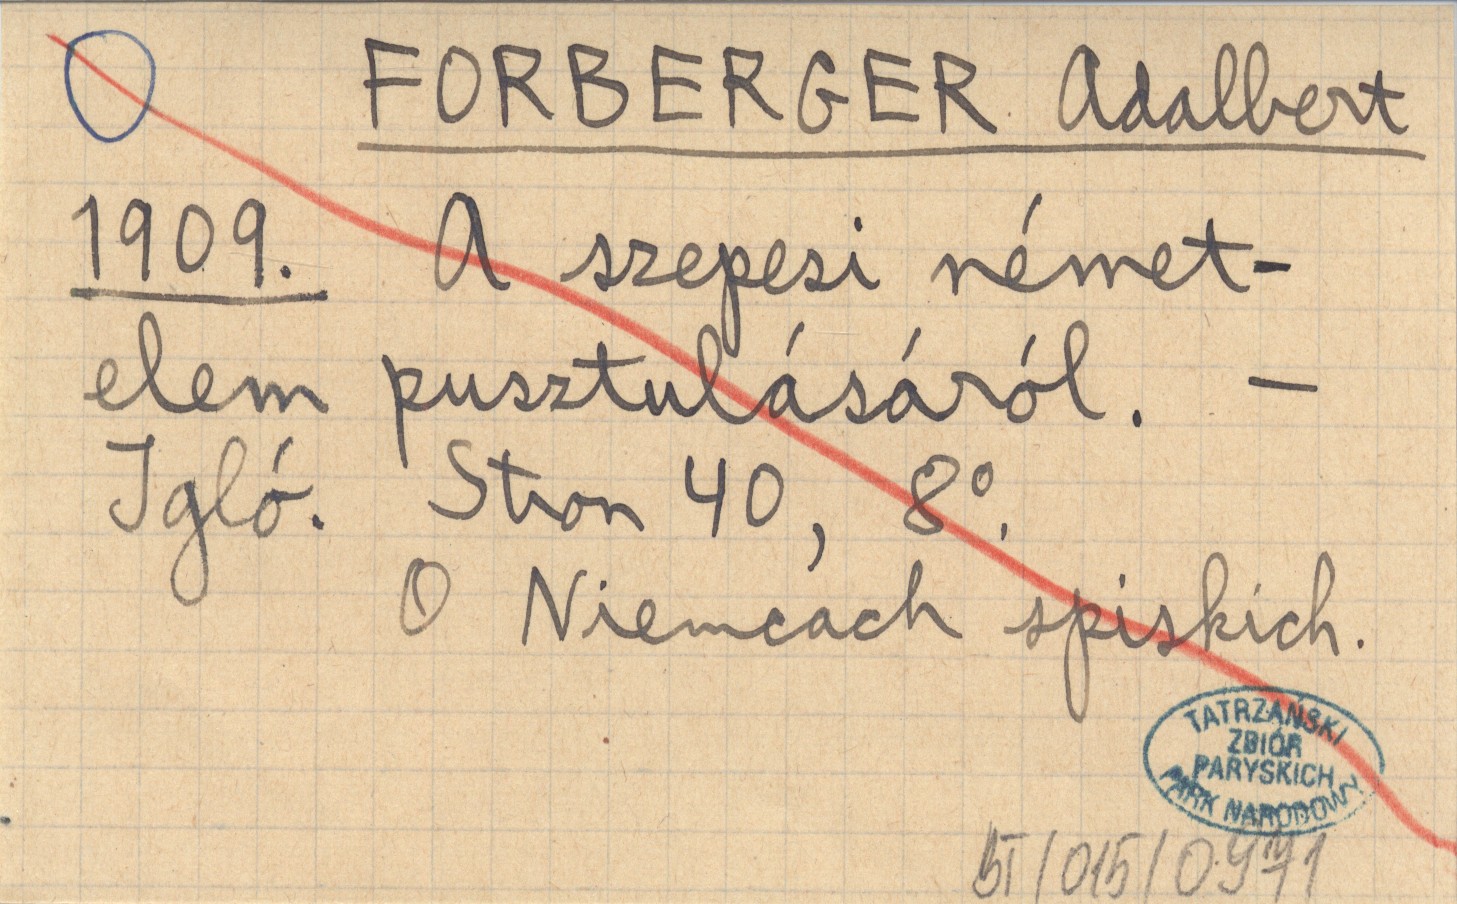 FORBERGER Adalbert
1909. A szepesi német-
elem pusztulásáról. —
Igló. Stron 40, 8°.
O Niemcach spiskich.
TATRZAŃSKI
ZBIÓR
PARYSKICH
PARK NARODOWY
BT/015/0971